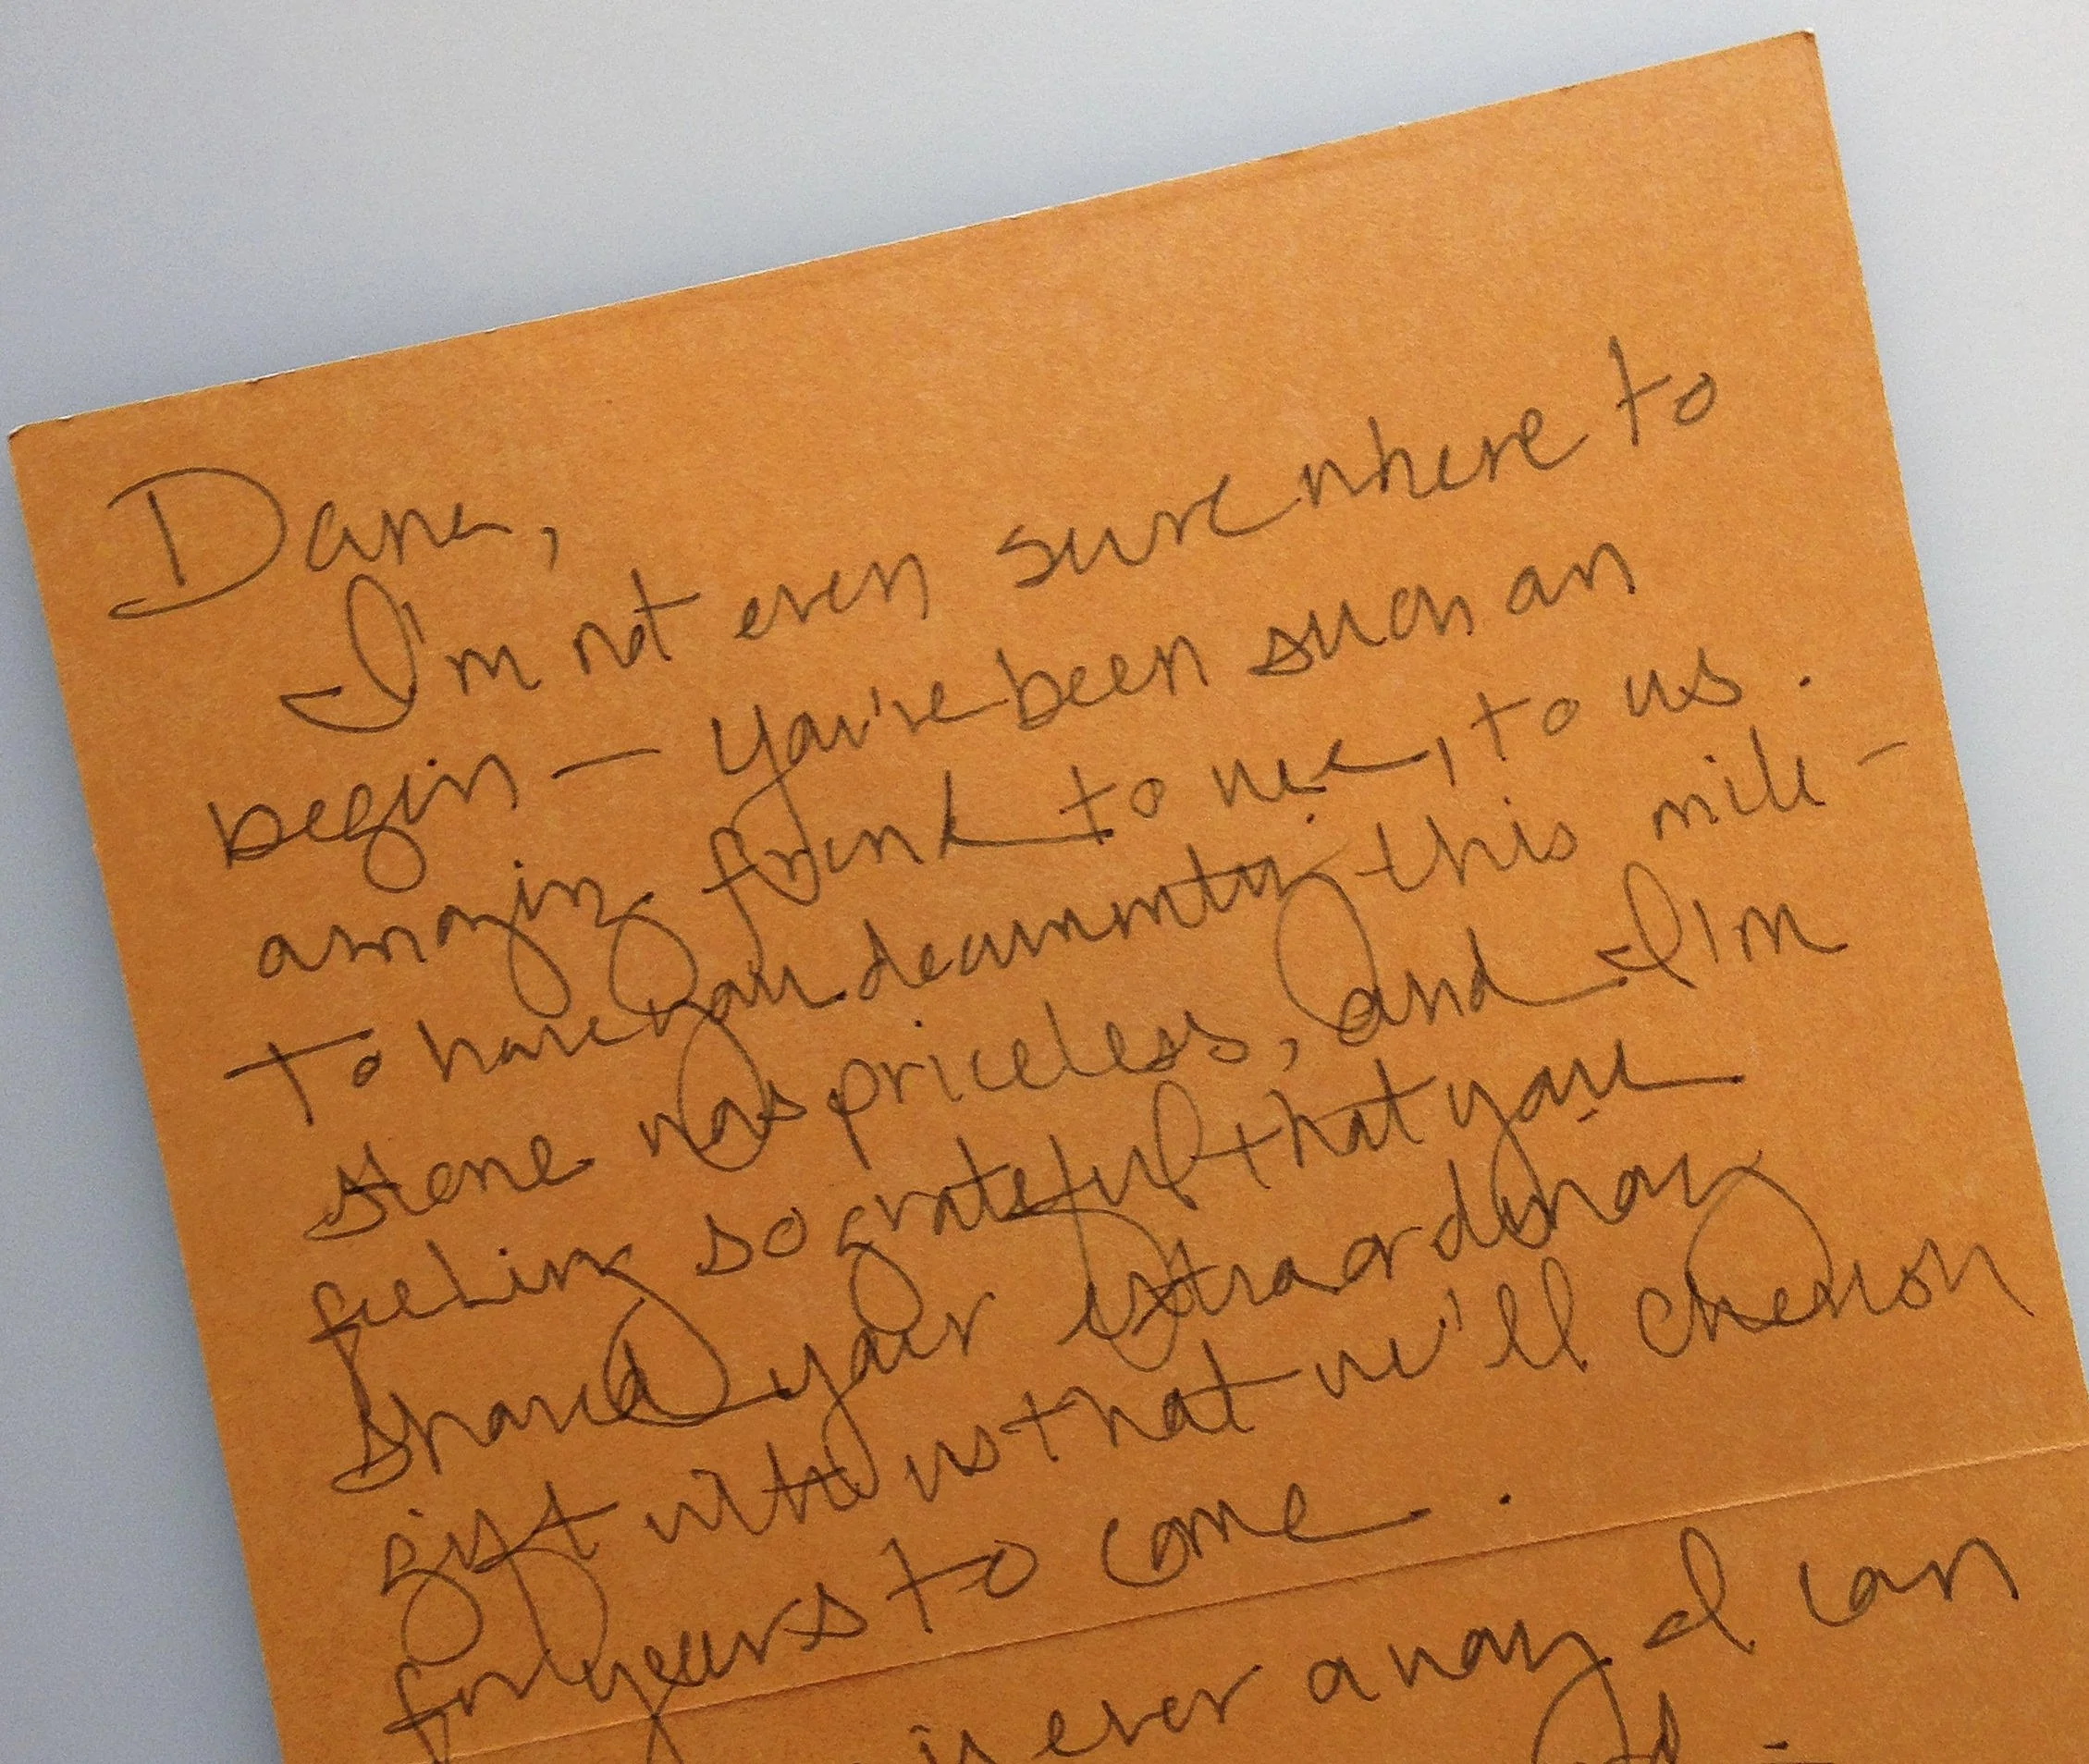 Dana,
I'm not even sure where to
begin — you've been such an
amazing friend to me, to us.
To have you document this mile-
stone was priceless, and I'm
feeling so grateful that you
shared your extraordinary
gift with us that we'll cherish
for years to come.
is ever a way I can